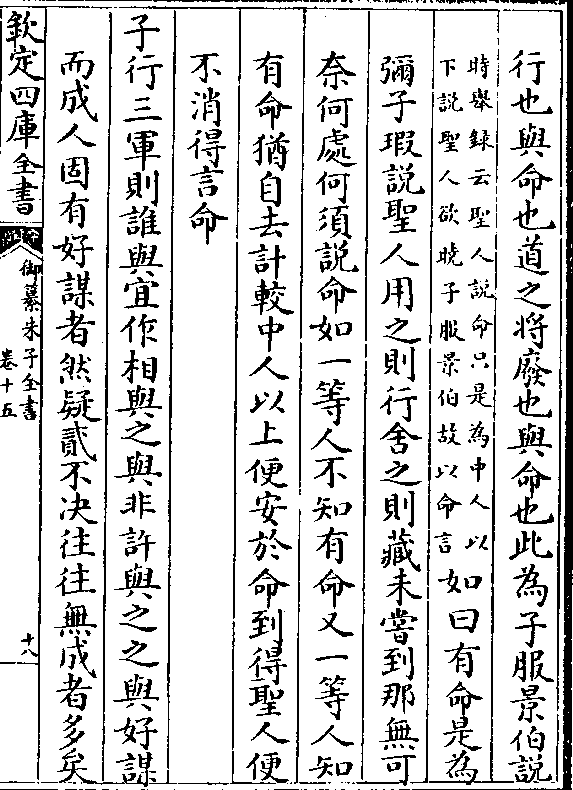 行也與命也道之將廢也與命也此為子服景伯說
時舉録云聖人說命只是為中人以
下說聖人欲曉子服景伯故以命言
如曰有命是為
彌子瑕說聖人用之則行舍之則藏未嘗到那無可
奈何處何須說命如一等人不知有命又一等人知
有命猶自去計較中人以上便安於命到得聖人便
不消得言命
子行三軍則誰與宜作相與之與非許與之之與好謀
而成人固有好謀者然疑貳不决往往無成者多矣
欽定四庫全書
御纂朱子全書
卷十五
十八